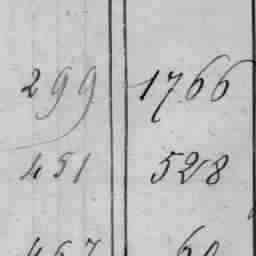 299 1766
451 528
467 60